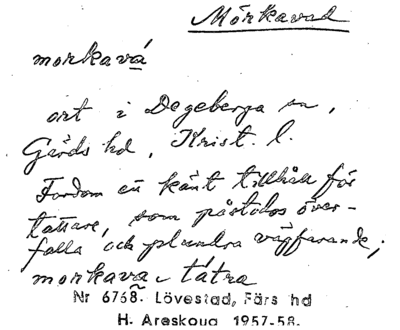 Mörkavad
morkavá
ort i Degeberga sn,
Gärds hd, Krist. l.
Fordom en känt tillhåll för
tattare, som påstodos över-
falla och plundra vägfarande;
morkava tátra
Nr 6768. Lövestad, Färs hd
H. Areskoug 1957-58.